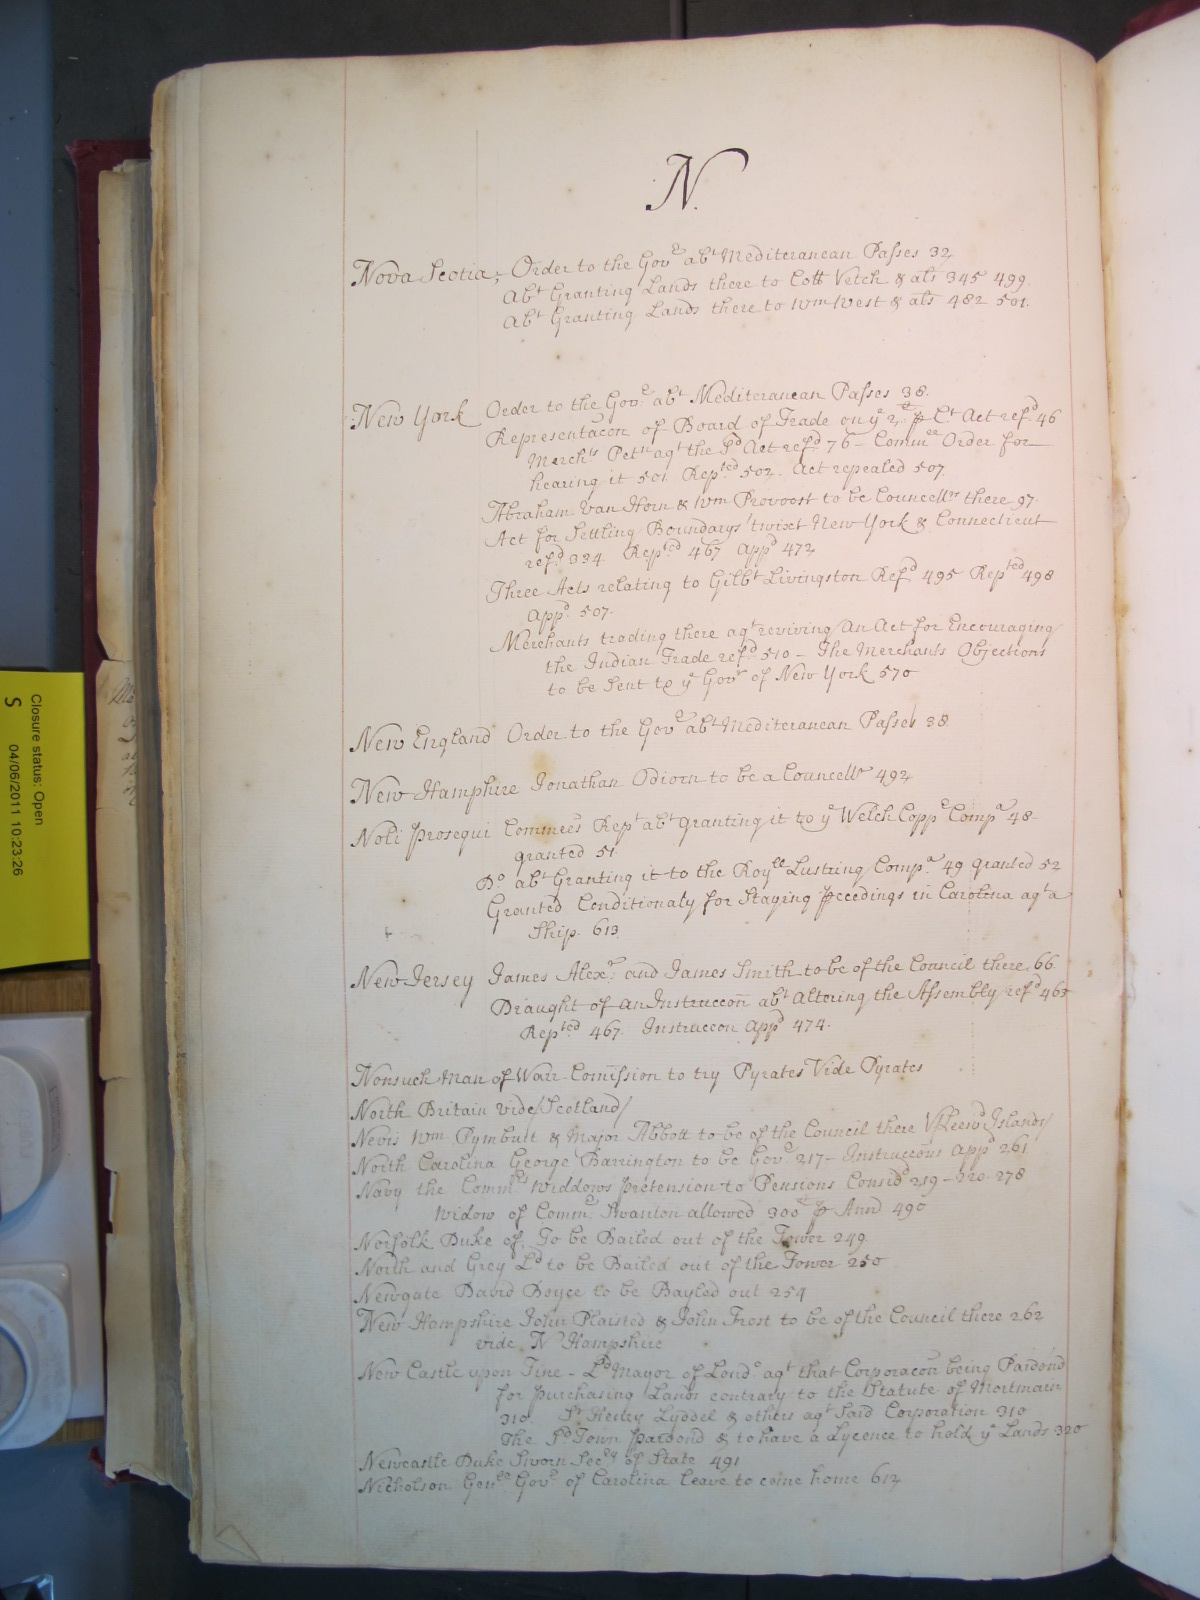 N.
Nova Scotia, Order to the Govr abt Mediteranean Passes 32
Abt Granting Lands there to Coll Vetch & als 345 499.
Abt Granting Lands there to Wm West & als 482 501.
New York Order to the Govr abt Mediteranean Passes 38.
Representacon of Board of Trade on ye 2 p Ct Act refd 46
Merchts Petn agt the sd Act refd 76 - Commee Order for
hearing it 501 Repted 502. Act repealed 507.
Abraham Van Horn & Wm Provoost to be Councellrs there 97.
Act for Settling Boundarys 'twixt New York & Connecticut
refd 334. Repted 467 Appd 472
Three Acts relating to Gilbt Livingston Refd 495 Repted 498
Appd 507.
Merchants trading there agt reviving an Act for Encouraging
the Indian Trade refd 510 - The Merchants Objections
to be sent to ye Govr of New York 570
New England Order to the Govr abt Mediteranean Passes 38
New Hampshire Jonathan Odiorn to be a Councellr 492
Noli Prosequi Commees Rept abt granting it to ye Welch Coppr Compa 48
granted 51
Do abt Granting it to the Royll Lustring Compa 49 granted 52
Granted Conditionaly for Staying pceedings in Carolina agt a
Ship. 613
New Jersey James Alexr and James Smith to be of the Council there 66
Draught of an Instruccon abt altering the Assembly refd 463
Repted 467. Instruccon Appd 474.
Nonsuch Man of Warr Comission to try Pyrates Vide Pyrates
North Britain vide Scotland
Nevis Wm Pymbutt & Major Abbott to be of the Council there V Leewd Islands
North Carolina George Barrington to be Govr 217 - Instruccons Appd 261
Navy the Commrs Widdows pretension to Pensions Considd 219 - 220. 278
Widow of Commr Swanton allowed 300 p Ann 490
Norfolk Duke of. To be Bailed out of the Tower 249
North and Grey Ld to be Bailed out of the Tower 250
Newgate David Boyce to be Bayled out 254
New Hampshire John Plaisted & John Frost to be of the Council there 262
vide N Hampshire
New Castle upon Tine - Ld Mayor of Londo agt that Corporacon being Pardond
for purchasing Lands contrary to the Statute of Mortmain
310. Sr Henry Lyddel & others agt Said Corporation 310
The sd Town pardond & to have a Lycence to hold ye Lands 320
Newcastle Duke Sworn Secry of State 491
Nicholson Genll Govr of Carolina leave to come home 612
Closure status: Open
S 04/06/2011 10:23:26